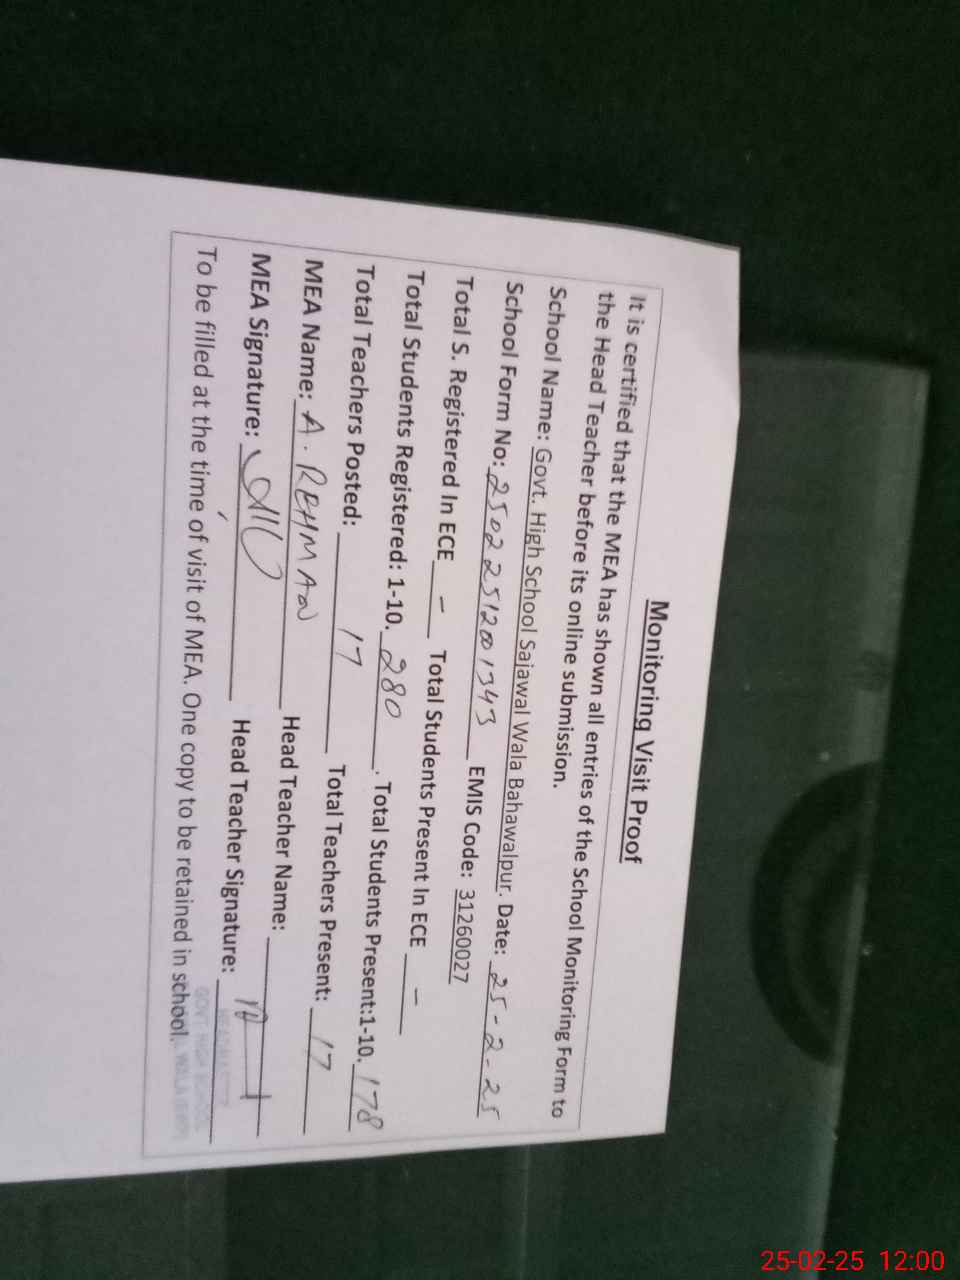 Monitoring Visit Proof
It is certified that the MEA has shown all entries of the School Monitoring Form to
the Head Teacher before its online submission.
School Name: Govt. High School Sajawal Wala Bahawalpur. Date: 25-2-25
School Form No: 25022512001343 EMIS Code: 31260027
Total S. Registered In ECE - Total Students Present In ECE -
Total Students Registered: 1-10. 280. Total Students Present:1-10. 178
Total Teachers Posted: 17 Total Teachers Present: 17
MEA Name: A. REHMAN Head Teacher Name:
MEA Signature: Head Teacher Signature:
To be filled at the time of visit of MEA. One copy to be retained in school.
GOVT HIGH SCHOOL
25-02-25 12:00